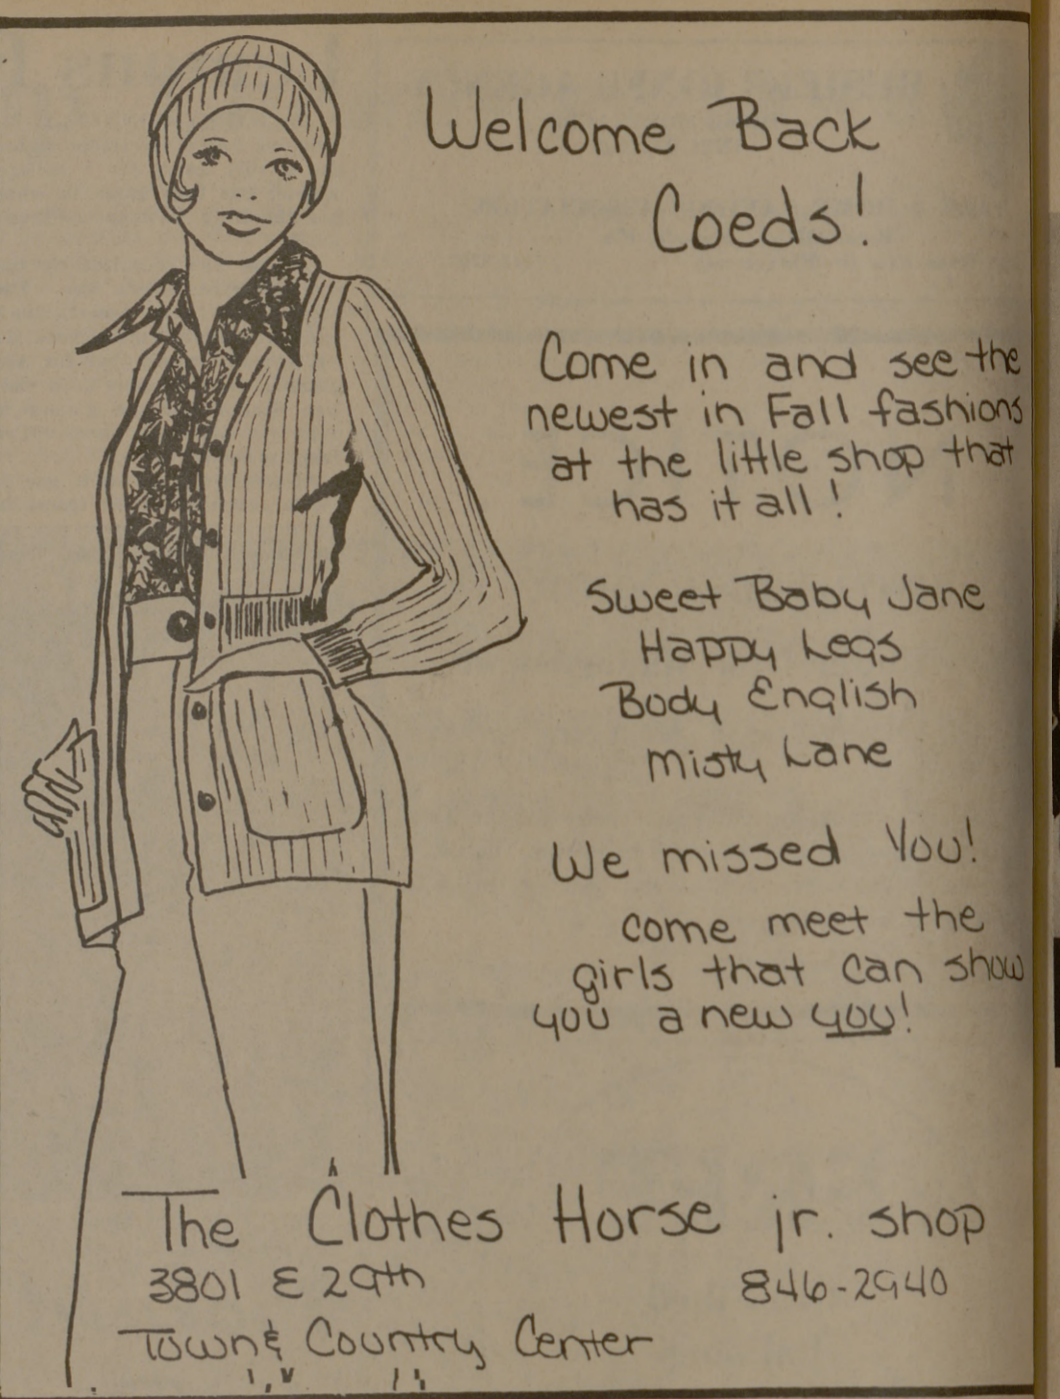 Welcome Back
Coeds!
Come in and see the
newest in Fall fashions
at the little shop that
has it all!
Sweet Baby Jane
Happy Legs
Body English
Misty Lane
We missed You!
come meet the
girls that can show
you a new you!
The Clothes Horse jr. shop
3801 E 29th 846-2940
Town & Country Center